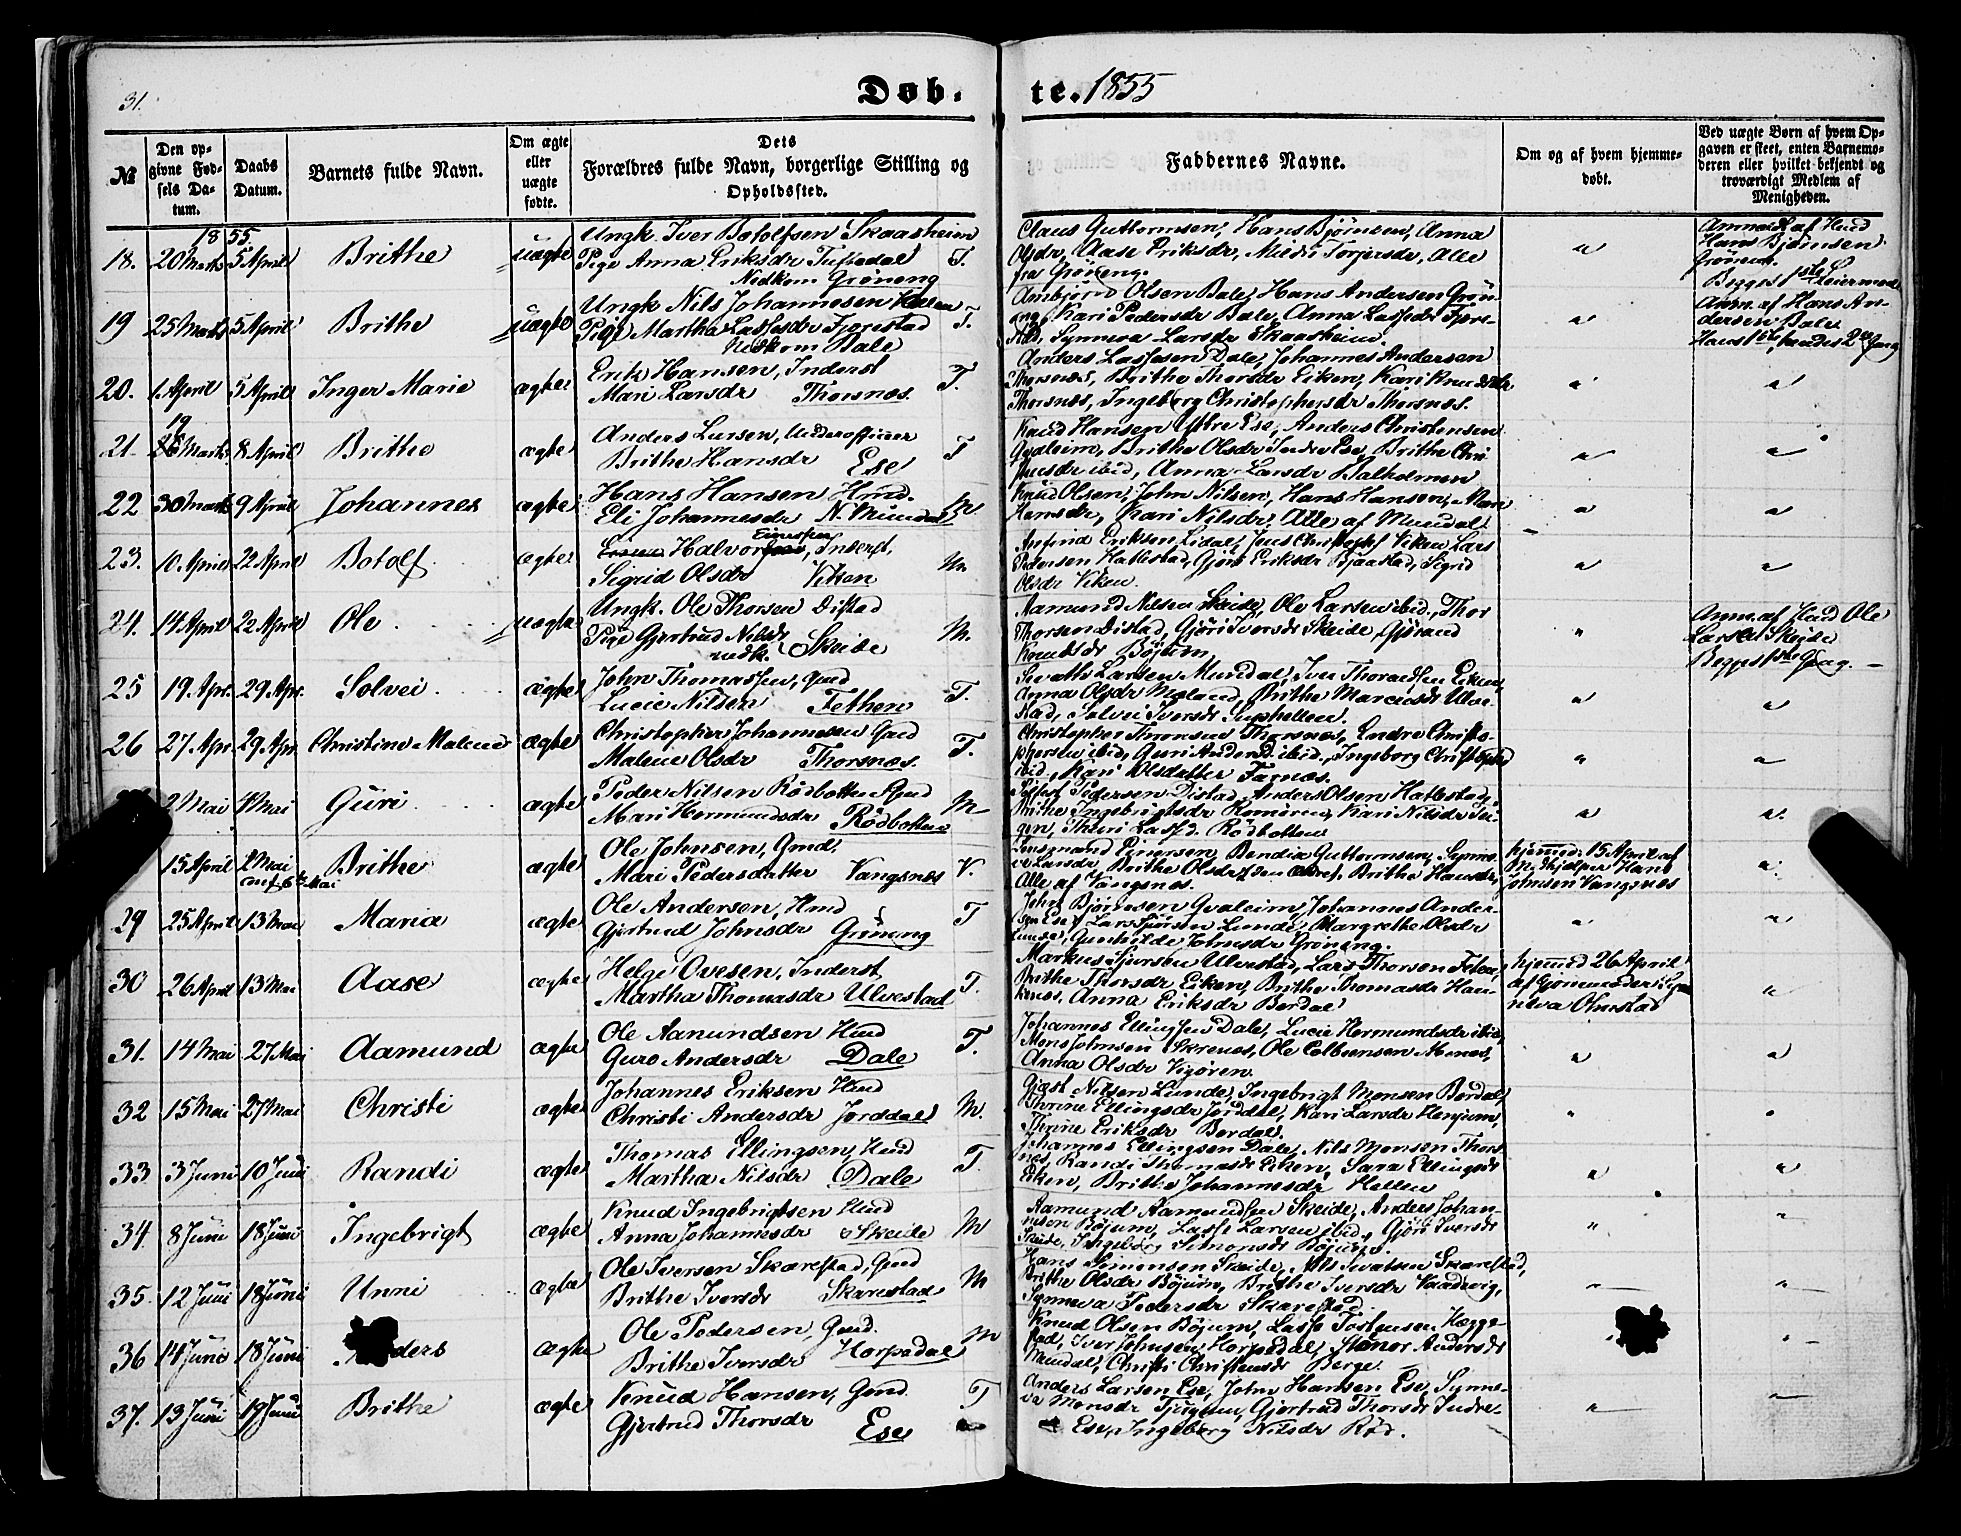 31.
Døb-
te. 1855
№
Den op-
givne Fød-
sels Da-
tum.
Daabs
Datum.
Barnets fulde Navn.
Om ægte
eller
uægte
fødte.
Dets
Forældres fulde Navn, borgerlige Stilling og
Opholdssted.
Faddernes Navne.
Om og af hvem hjemme-
døbt.
Ved uægte Børn af hvem Op-
gaven er skeet, enten Barnemo-
deren eller hvilket bekjendt og
troværdigt Medlem af
Menigheden.
1855.
18. 20 Marts 5 April Brithe uægte
Ungk. Iver Botolfsen Skaasheim
Pige Anna Eriksdr T.
Nedkom Grøneng
Claus Guttormsen, Hans Bjørnsen, Anna
Olsdr, Aase Eriksdr, Torjersdr, Alle
fra Grøneng.
"
Anm. af Hmd
Hans Bjørnsen
Grøneng.
Begges 1ste Leiermaal
19 25 Marts 5 April Brithe uægte
Ungk Nils Johannesen
Pige Martha Lassesdr Fjærestad T.
Nedkom Bale
Ambjørn Olsen Bale, Hans Andersen Grøn-
eng, Kari Pedersdr Bale, Anna Lassesdr Fjære-
stad, Synneva Larsdr Skaasheim.
"
Anm. af Hans An-
dersen Bale
Hans 1ste, hendes 2den Gang
20. 1 April 5 April Inger Marie ægte
Erik Hansen, Inderst T.
Mari Larsdr Thorsnæs.
Anders Lassesen Dale, Johannes Andersen
Thorsnæs, Brithe Thorsdr Eiken, Kari Knudsdr
Thorsnæs, Ingeborg Christophersdr Thorsnæs.
" "
19
21 Marts 8 April Brithe ægte
Anders Larsen, Underofficeer T
Brithe Hansdr Ese
Knud Hansen Ytre Ese, Anders Christensen
Qvaleim, Brithe Olsdr Indre Ese, Brithe Chri-
sensdr ibid, Anna Larsdr Balholmen
" "
22 30 Marts 9 April Johannes ægte
Hans Hansen Hmd. M
Eli Johannesdr N. Mundal
Knud Olsen, John Nilsen, Hans Hansen, Mari
Hansdr, Kari Nilsdr, Alle af Mundal
" "
23. 10 April 22 April Botolf ægte
Halvor Einersen, Inderst, M.
Sigrid Olsdr Viken
Anfind Eriksen Lidal, Jens Christophs Viken, Lars
Pedersen Hatlestad, Gjøri Eriksdr Bjaastad, Sigrid
Olsdr Viken.
" "
24. 14 April 22 April Ole uægte
Ungk. Ole Thorsen Distad
Pige Gjertrud Nilsdr M.
nedk. Skeide
Aamund Nilsen Skeide, Ole Larsen ibid., Thor
Thorsen Distad, Gjøri Iversdr Skeide, Gjørand
Knudsdr Bøjum,
"
Anm. af Hmd Ole
Larsen Skeide
Begges 1ste Gang. —
25 19 Apr. 29 Apr. Solvei ægte
John Thomassen, Gmd T.
Lucie Nilsen Fethen
Larsen Mundal, Iver Thoradsen Eiken,
Anna Olsdr Meland, Brithe Marcusdr Ulve-
stad, Solvei Iversdr Suphellen.
" "
26 27 Apr. 29 Apr. Christine Malene ægte
Christopher Johannesen Gmd T.
Malene Olsdr Thorsnæs.
Christopher Thomsen Thorsnæs, Endre Christo-
phersen ibid, Guri Andersd. ibid., Ingeborg Christophd
ibid., Kari Olsdatter Farnæs.
" "
2 Mai 4 Mai Guri ægte
Peder Nilsen Rødbotten Gmd M
Mari Hermundsdr Rødbotten
Pedersen Distad, Anders Olsen Hatlestad,
Brithe Ingebrigtsdr Romøren, Kari Nilsdr
Lassd. Rødbotten
" "
15 April 2 Mai Brithe ægte
conf. 6te Mai
Ole Johnsen, Gmd.
Mari Pedersdatter Vangsnæs V.
Einersen, Bendix Guttormsen, Synne-
ve Larsdr, Brithe Olsdr, Brithe Hansdr,
Alle af Vangsnæs.
hjemmed. 15 April af
Medhjelper Hans
Johnsen Vangsnæs
"
29 25 April 13 Mai Maria ægte
Ole Andersen, Hmd T
Gjertrud Johnsdr Grøneng
John Bjørnsen Qvaleim, Johannes Ander-
sen Ese, Lars Sjursen Lunde, Margrethe Olsdr
Lunde, Gunhilde Johnsdr Grøneng.
" "
30 26 April 13 Mai Aase ægte
Helge Ovesen, Inderst T.
Martha Thomasdr Ulvestad
Markus Sjursen Ulvestad, Lars Thorsen Feten,
Brithe Thorsdr Eiken, Brithe Thomasdr Hau-
knæs, Anna Eriksdr Berdal
hjemmed 26 April
af Gjommoder Syn-
neva Ohnstad
"
31. 14 Mai 27 Mai Aamund ægte
Ole Aamundsen Hmd T.
Guro Andersdr Dale
Johannes Ellingsen Dale, Lucie Hermundsdr ibid,
Mons Johnsen Skrenes, Ole Colbensen Menes,
Anna Olsdr Vigøren.
" "
32 15 Mai 27 Mai Christi ægte
Johannes Eriksen Hmd
Christi Andersdr Jorddal M.
Gjest Nilsen Lunde, Ingebrigt Monsen Berdal,
Thrine Ellingsdr Jorddal, Kari Larsdr Henjum,
Thrine Eriksdr Berdal.
" "
33. 3 Juni 10 Juni Randi ægte
Thomas Ellingsen, Hmd T
Martha Nilsdr Dale
Johannes Ellingsen Dale, Nils Monsen Thors-
nes, Randi Thomasdr Eiken, Sara Ellingsdr
Eiken, Brithe Johannesdr Hellen
" "
34. 8 Juni 18 Juni Ingebrigt ægte
Knud Ingebrigtsen Hmd
Anna Johannesdr Skeide M
Aamund Aamundsen Skeide, Anders Johan-
nesen Bøjum, Lasse Larsen ibid., Gjøri Iversdr
Skeide, Ingeborg Simonsdr Bøjum.
" "
35. 12 Juni 18 Juni Unni ægte
Ole Iversen Skarestad, Gmd M
Brithe Iversdr Skarestad
Hans Simonsen Skeide, Nils Skarestad,
Brithe Olsdr Bøjum, Brithe Iversdr
Synneva Pedersdr Skarestad.
" "
36 14 Juni 18 Juni ders ægte
Ole Pedersen, Gmd. M
Brithe Iversdr Horpedal
Knud Olsen Bøjum, Lasse Tostensen Hegge-
stad, Iver Johnsen Horpedal, Andersdr
Mundal, Christi Christensdr Berge. —
37. 13 Juni 19 Juni Brithe ægte
Knud Hansen, Gmd. T
Gjertrud Thorsdr Ese
Anders Larsen Ese, John Hansen Ese, Synne-
ve Monsdr Tjugum, Gjertrud Thorsdr Indre-
Ese, Ingeborg Nilsdr Rød.
" —